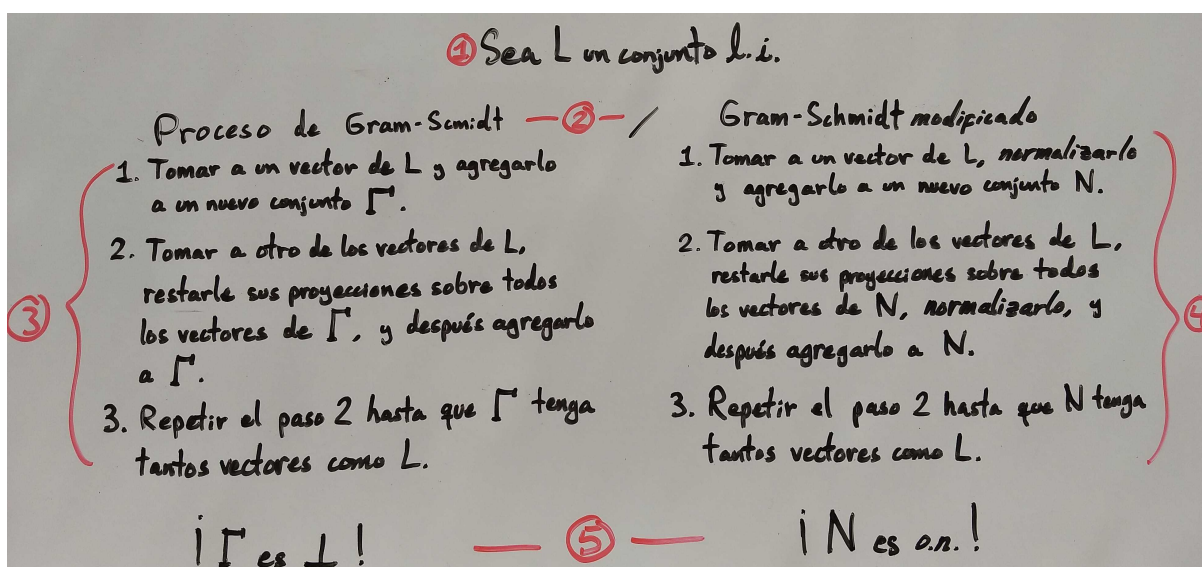 ① Sea L un conjunto l.i.
Proceso de Gram-Scmidt — ② — /
1. Tomar a un vector de L y agregarlo
a un nuevo conjunto Γ.
2. Tomar a otro de los vectores de L,
restarle sus proyecciones sobre todos
los vectores de Γ, y después agregarlo
a Γ.
3. Repetir el paso 2 hasta que Γ tenga
tantos vectores como L.
③
¡Γ es ⊥!
— ⑤ —
Gram-Schmidt modificado
1. Tomar a un vector de L, normalizarlo
y agregarlo a un nuevo conjunto N.
2. Tomar a otro de los vectores de L,
restarle sus proyecciones sobre todos
los vectores de N, normalizarlo, y
después agregarlo a N.
3. Repetir el paso 2 hasta que N tenga
tantos vectores como L.
④
¡N es o.n.!